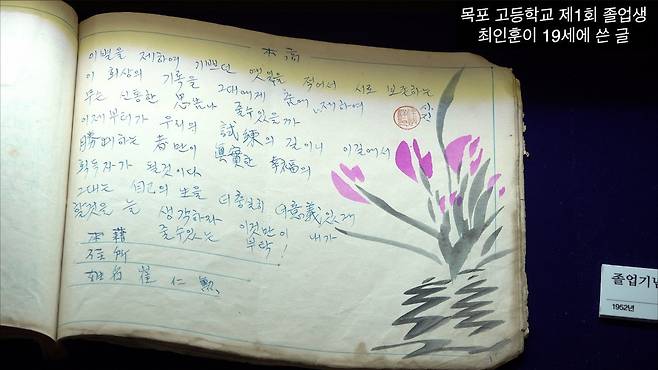 목포 고등학교 제1회 졸업생
최인훈이 19세에 쓴 글
이별을 제하여 기쁘던 옛일을 적어서 서로 보존하는
이 회상의 기록을 그대에게 줌에 제하여
무슨 신통한 思 줄수있을까
이제부터가 우리의 試練의 길이니 이길에서
勝 하는 者만이 眞實한 幸福의
획득자가 될것이다
그대는 自己의 生을 더 충실히 더意義있게
할것을 늘 생각하자 이것만이 내가
줄수있는 부탁!
本籍
住所
姓名 崔 仁 勲
졸업기념
1952년